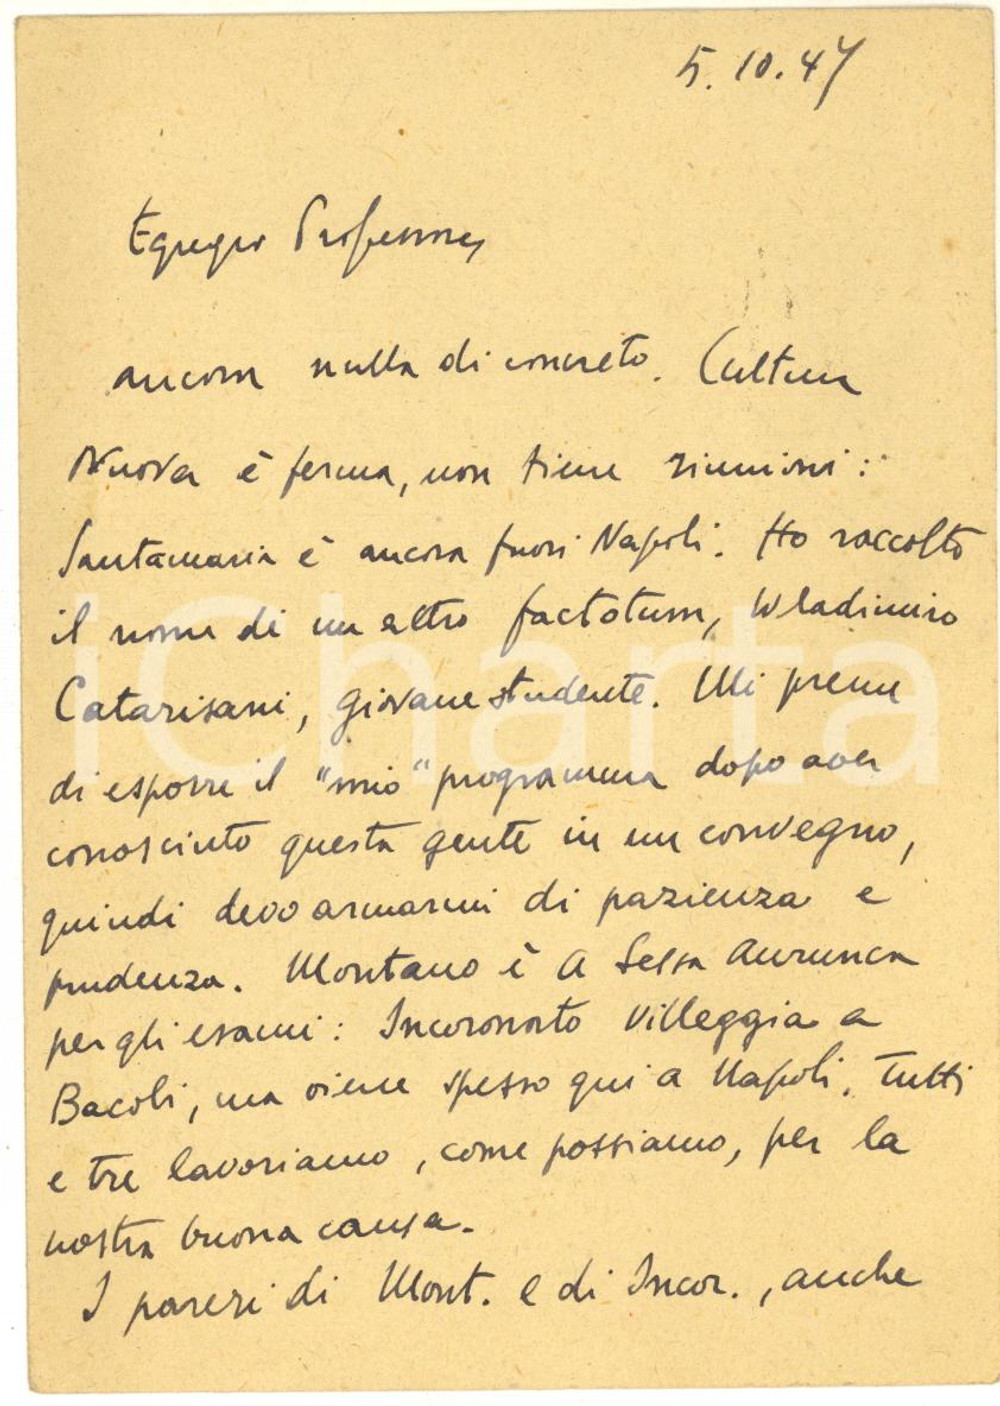 5.10.47
Egregio Professore,
ancora nulla di concreto. Cultura
Nuova è ferma, non tiene riunioni:
Santamaria è ancora fuori Napoli. Ho raccolto
il nome di un altro factotum, Wladimiro
Catarisani, giovane studente. Mi preme
di esporre il "mio" programma dopo aver
conosciuto questa gente in un convegno,
quindi devo armarmi di pazienza e
prudenza. Montano è a Sessa Aurunca
per gli esami: Incoronato villeggia a
Bacoli, ma viene spesso qui a Napoli. Tutti
e tre lavoriamo, come possiamo, per la
nostra buona causa.
I pareri di Mont. e di Incor., anche
iCharta